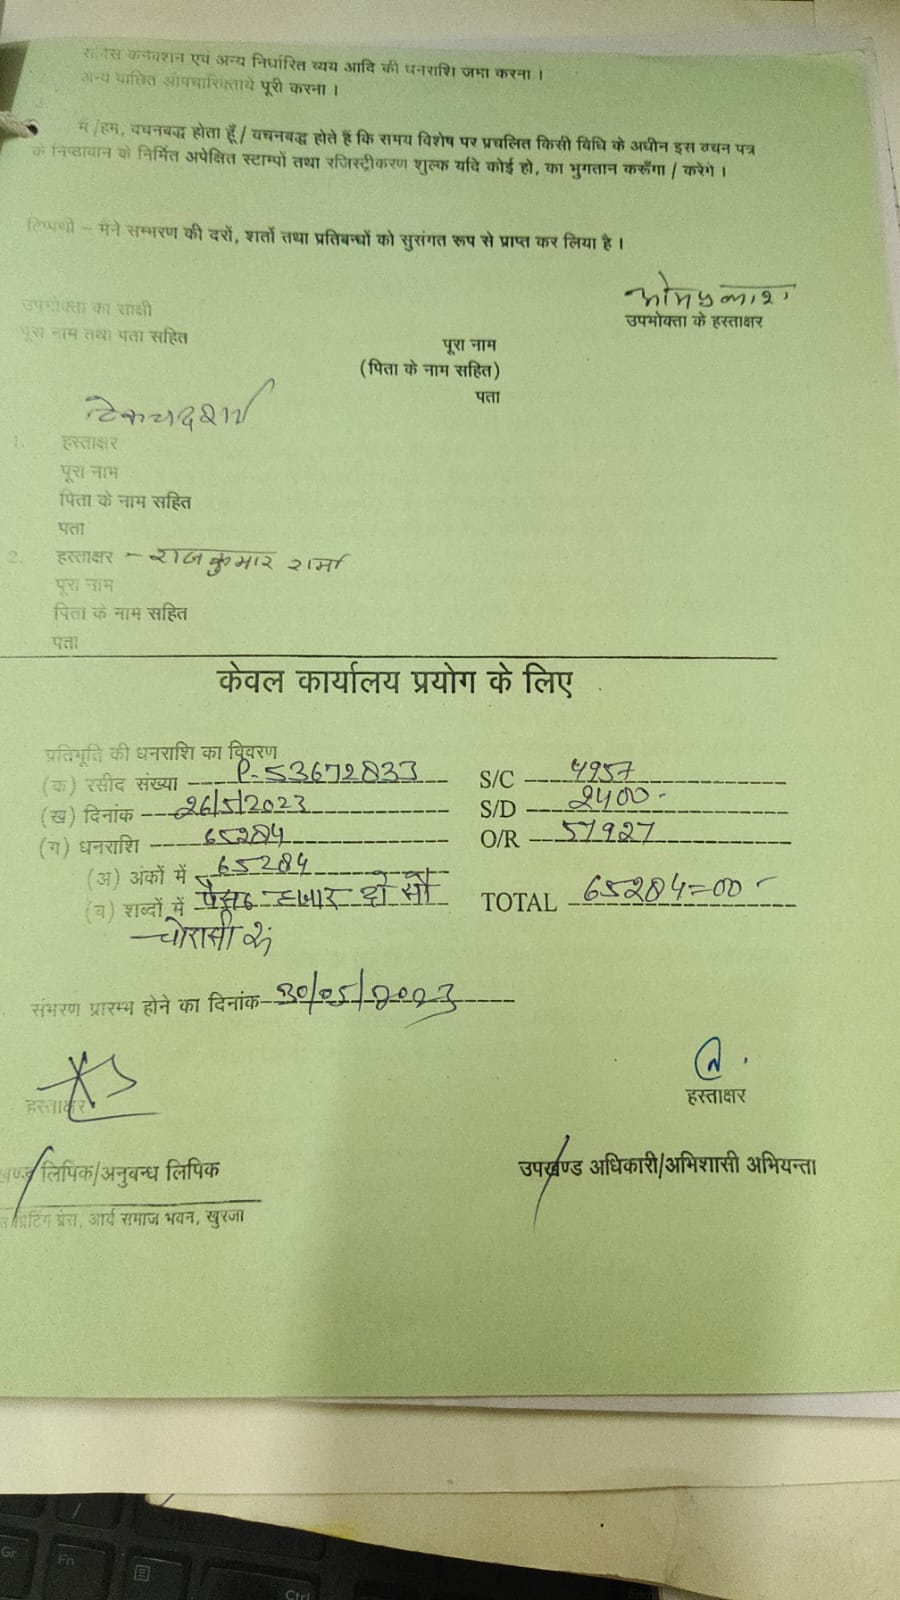 कनेक्शन एवं अन्य निर्धारित व्यय आदि की धनराशि जमा करना ।
अन्य वांछित औपचारिक्तायें पूरी करना ।
मैं /हम, वचनबद्ध होता हूँ / वचनबद्ध होते हैं कि समय विशेष पर प्रचलित किसी विधि के अधीन इस वचन पत्र
के निष्ठावान के निर्मित अपेक्षित स्टाम्पों तथा रजिस्ट्रीकरण शुल्क यदि कोई हो, का भुगतान करूँगा / करेगे ।
टिप्पणी – मैंने सम्भरण की दरों, शर्तो तथा प्रतिबन्धों को सुसंगत रूप से प्राप्त कर लिया है ।
ओमप्रकाश
उपभोक्ता का साक्षी
उपभोक्ता के हस्ताक्षर
पूरा नाम तथा पता सहित
पूरा नाम
(पिता के नाम सहित)
पता
1. हस्ताक्षर
पूरा नाम
पिता के नाम सहित
पता
2. हस्ताक्षर – राजकुमार शर्मा
पूरा नाम
पिता के नाम सहित
पता
केवल कार्यालय प्रयोग के लिए
प्रतिभूति की धनराशि का विवरण
(क) रसीद संख्या P-53672833 S/C 4957
(ख) दिनांक 26/5/2023 S/D 2400-
(ग) धनराशि 65284 O/R 57927
(अ) अंकों में 65284
(ब) शब्दों में पैंसठ हजार दो सौ TOTAL 65284=00
चोरासी रु
संभरण प्रारम्भ होने का दिनांक 30/05/2023
हस्ताक्षर हस्ताक्षर
लिपिक/अनुबन्ध लिपिक उपखण्ड अधिकारी/अभिशासी अभियन्ता
प्रिंटिंग प्रेस, आर्य समाज भवन, खुरजा
Gr
Fn
Ctrl